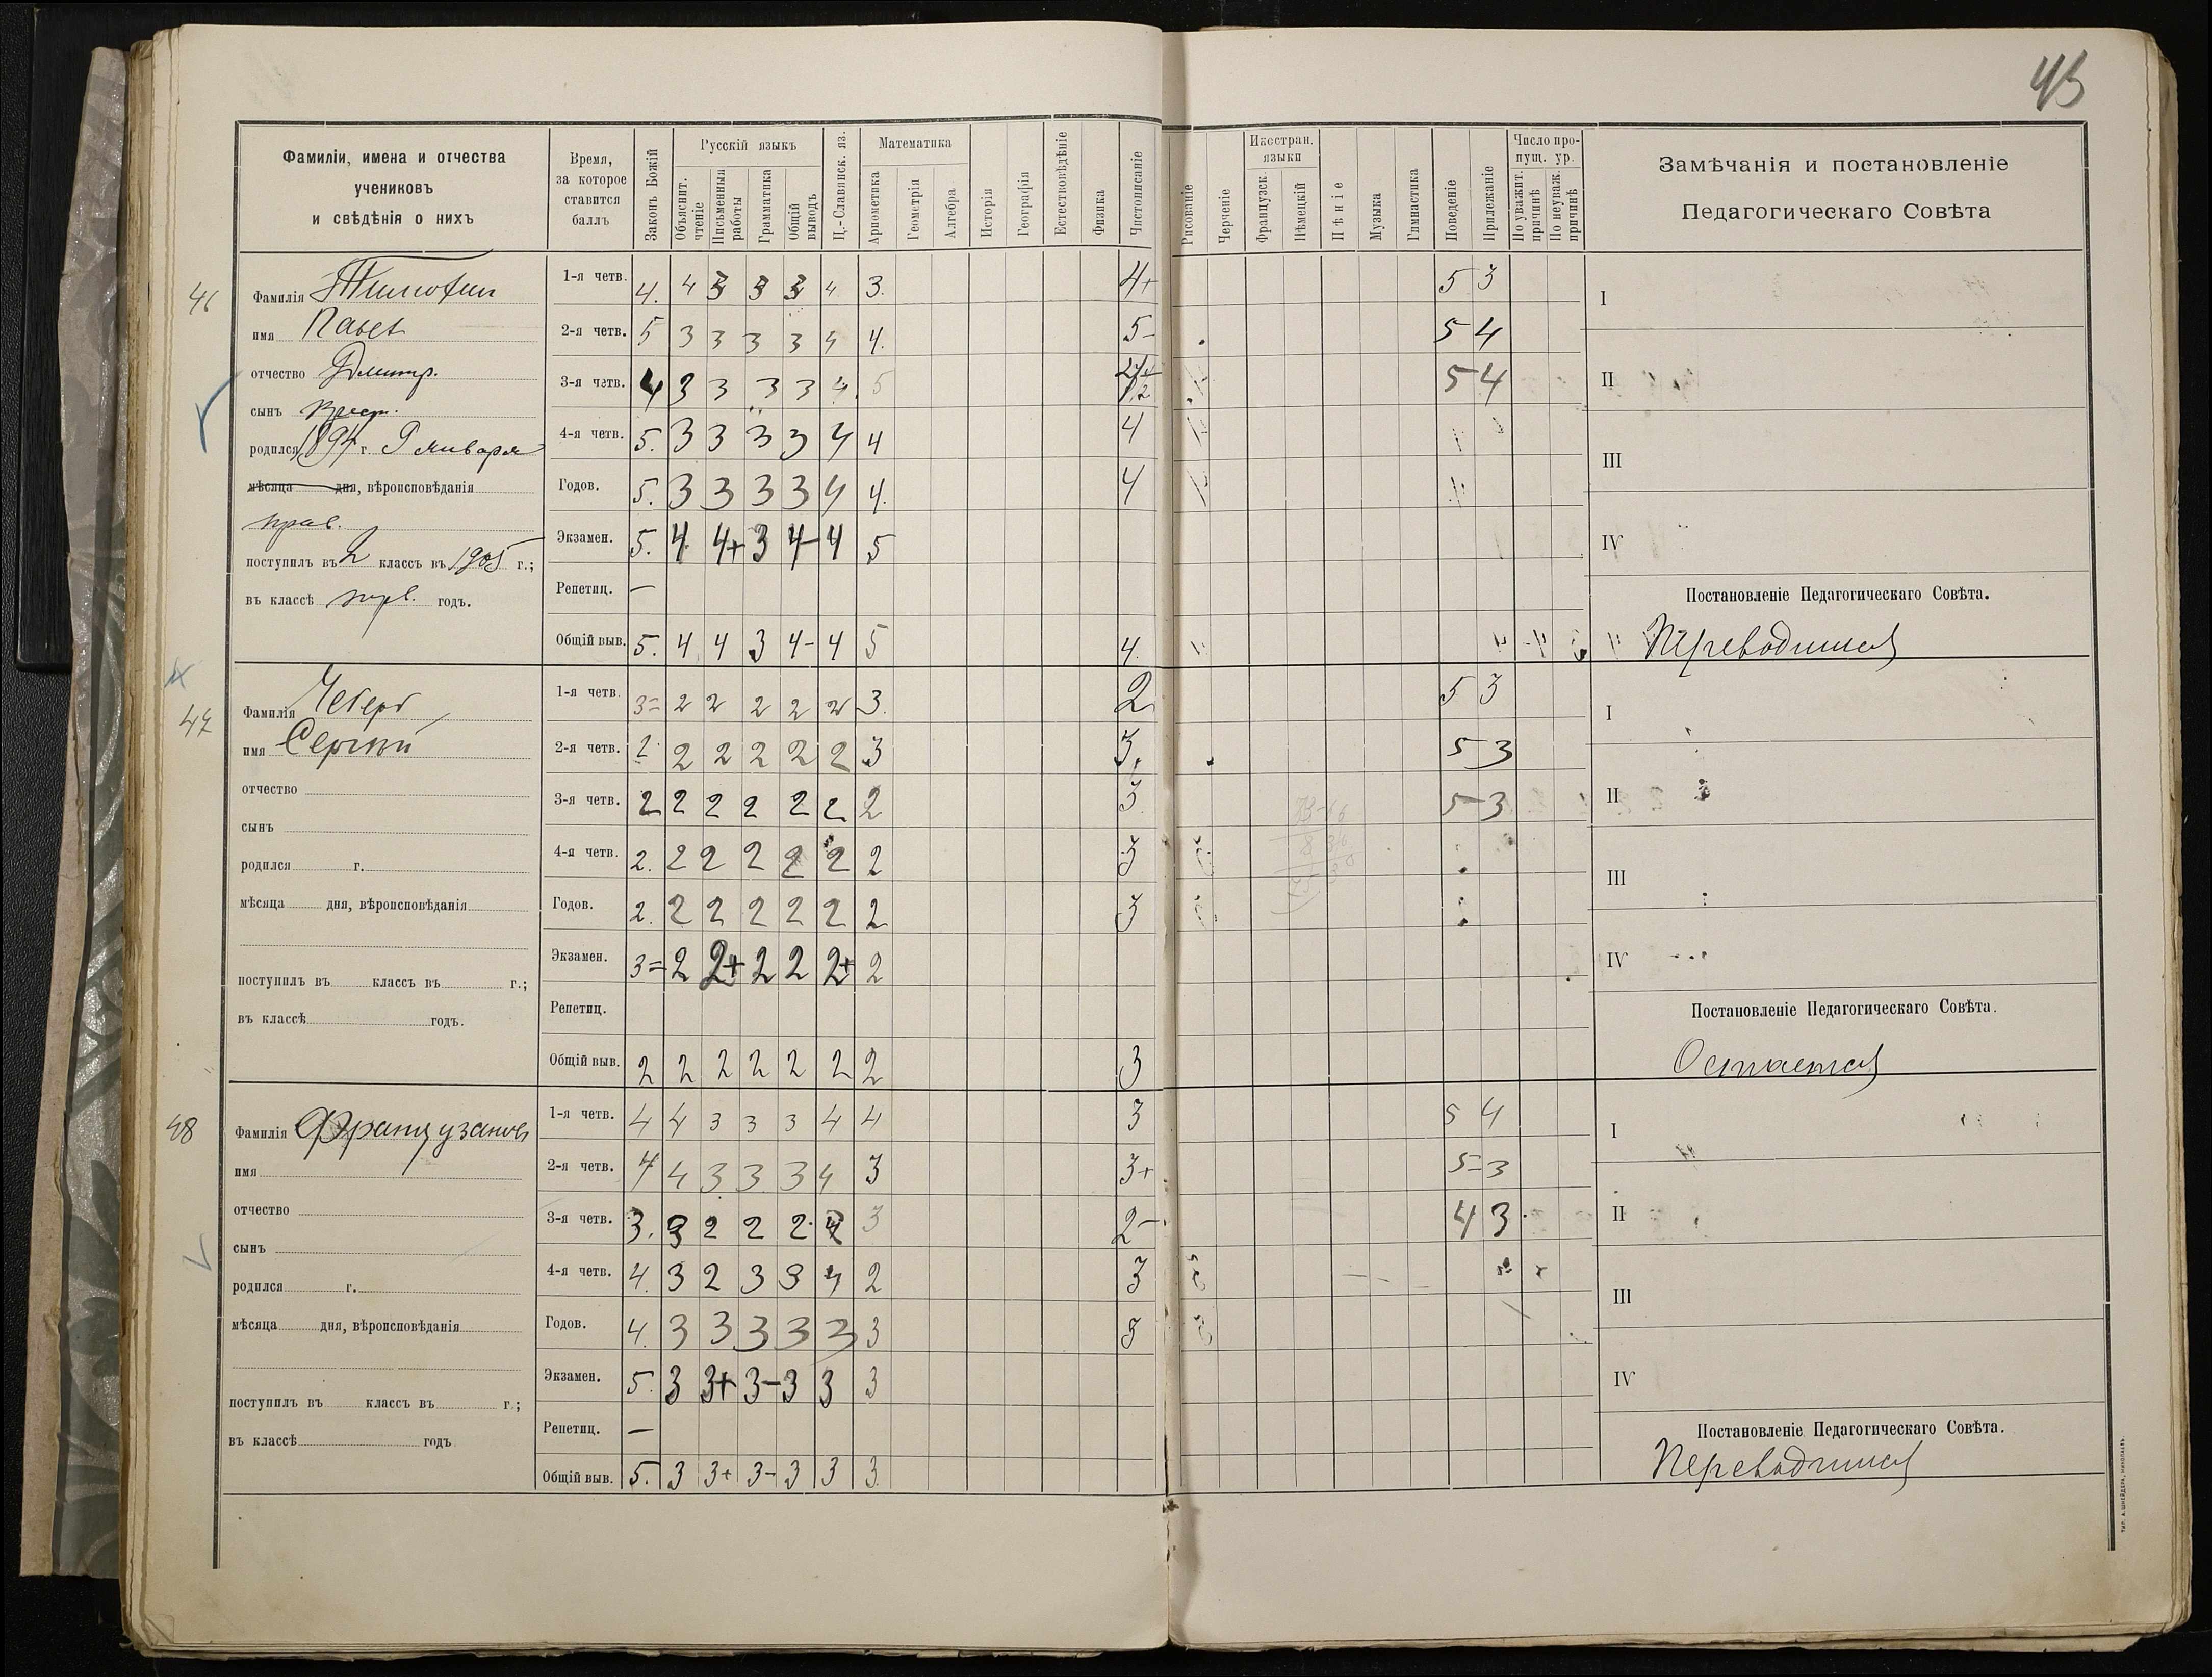 45
Фамиліи, имена и отчества
учениковъ
и свѣдѣнія о нихъ
Время,
за которое
ставится
баллъ
Законъ Божій
Русскій языкъ
Объяснит. чтеніе
Письменныя работы
Грамматика
Общій выводъ
Ц.-Славянск. яз.
Математика
Ариѳметика
Геометрія
Алгебра
Исторія
Географія
Естествовѣдѣніе
Физика
Чистописаніе
Рисованіе
Черченіе
Иностран. языки
Французск.
Нѣмецкій
Пѣніе
Музыка
Гимнастика
Поведеніе
Прилежаніе
Число пропущ. ур.
По уважит. причинѣ
По неуваж. причинѣ
Замѣчанія и постановленіе
Педагогическаго Совѣта
46
Фамилія Тимофеи
имя Павел
отчество Дмитр.
сынъ крест.
родился 1894 г. 9 января
мѣсяца дня, вѣроисповѣданія
прав.
поступилъ въ 2 классъ въ 1905 г.;
въ классѣ перв. годъ.
1-я четв. 4. 4 3 3 3 4 3. 4+ 5 3
2-я четв. 5 3 3 3 3 4 4. 5- 5 4
3-я четв. 4 3 3 3 3 4 5 5 4
4-я четв. 5. 3 3 3 3 4 4 4
Годов. 5. 3 3 3 3 4 4. 4
Экзамен. 5. 4 4+ 3 4- 4 5
Репетиц. —
Общій выв. 5. 4 4 3 4- 4 5 4.
I
II
III
IV
Постановленіе Педагогическаго Совѣта.
Переводится
47
Фамилія Чегерь
имя Сергѣй
отчество
сынъ
родился г.
мѣсяца дня, вѣроисповѣданія
поступилъ въ классъ въ г.;
въ классѣ годъ.
1-я четв. 3= 2 2 2 2 2 3. 2 5 3
2-я четв. 2 2 2 2 2 2 3 3. 5 3
3-я четв. 2 2 2 2 2 2 2 3 5 3
4-я четв. 2. 2 2 2 2 2 2 3
Годов. 2. 2 2 2 2 2 2 3
Экзамен. 3= 2 2+ 2 2 2+ 2
Репетиц.
Общій выв. 2 2 2 2 2 2 2 3
I
II
III
IV
Постановленіе Педагогическаго Совѣта.
Остается
48
Фамилія Французановъ
имя
отчество
сынъ
родился г.
мѣсяца дня, вѣроисповѣданія
поступилъ въ классъ въ г.;
въ классѣ годъ
1-я четв. 4 4 3 3 3 4 4 3 5 4
2-я четв. 4 4 3 3 3 4 3 3+ 5= 3
3-я четв. 3. 3 2 2 2 3 2- 4 3
4-я четв. 4. 3 2 3 3 4 2 3
Годов. 4. 3 3 3 3 3 3 3
Экзамен. 5. 3 3+ 3- 3 3 3
Репетиц. —
Общій выв. 5. 3 3+ 3- 3 3 3
I
II
III
IV
Постановленіе Педагогическаго Совѣта.
Переводится
ТИП. А. ШНЕЙДЕРА, НИКОЛАЕВЪ.